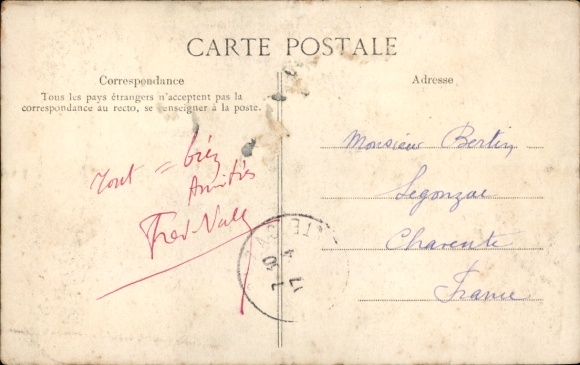 CARTE POSTALE
Correspondance
Tous les pays étrangers n'acceptent pas la
correspondance au recto, se renseigner à la poste.
Adresse
Tout = bien
Amitiés
Monsieur Bertin
Segonzac
Charente
France